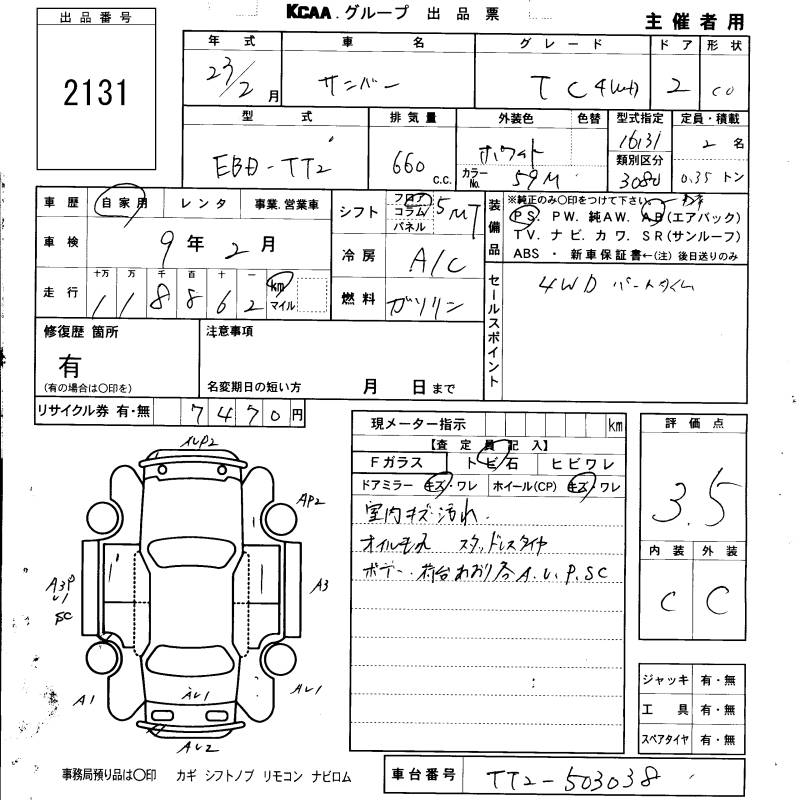 KCAA グループ 出品票
主催者用
出品番号
2131
年式 車名 グレード ドア 形状
23/2月 サンバー TC 4WD 2 CO
型式 排気量 外装色 色替 型式指定 定員・積載
EBD-TT2 660 C.C. ホワイト 16131 2名
カラーNo. 59M 類別区分 3080 0.35トン
車歴 自家用 レンタ 事業.営業車
車検 9年2月
走行 十万 万 千 百 十 一 km マイル
1 1 8 8 6 2
シフト フロア コラム パネル 5MT
冷房 A/C
燃料 ガソリン
装備品 ※純正のみ○印をつけて下さい。
PS. PW. 純AW. AB(エアバック)
TV. ナビ. カワ. SR(サンルーフ)
ABS ・ 新車保証書←(注)後日送りのみ
セールスポイント
4WD パートタイム
修復歴 箇所
有
(有の場合は○印を)
注意事項
名変期日の短い方 月 日まで
リサイクル券 有・無 7470円
現メーター指示 km
【査定員記入】
Fガラス トビ石 ヒビワレ
ドアミラー キズ・ワレ ホイール(CP) キズ・ワレ
室内キズ汚れ.
オイルモレ スタッドレスタイヤ
ボデー・荷台あおり各A.U.P.SC
評価点
3.5
内装 外装
C C
ジャッキ 有・無
工具 有・無
スペアタイヤ 有・無
AUP2
AP2
A3P
U1
SC
A3
A1
AU1
AU1
AU2
事務局預り品は○印 カギ シフトノブ リモコン ナビロム
車台番号 TT2-503038